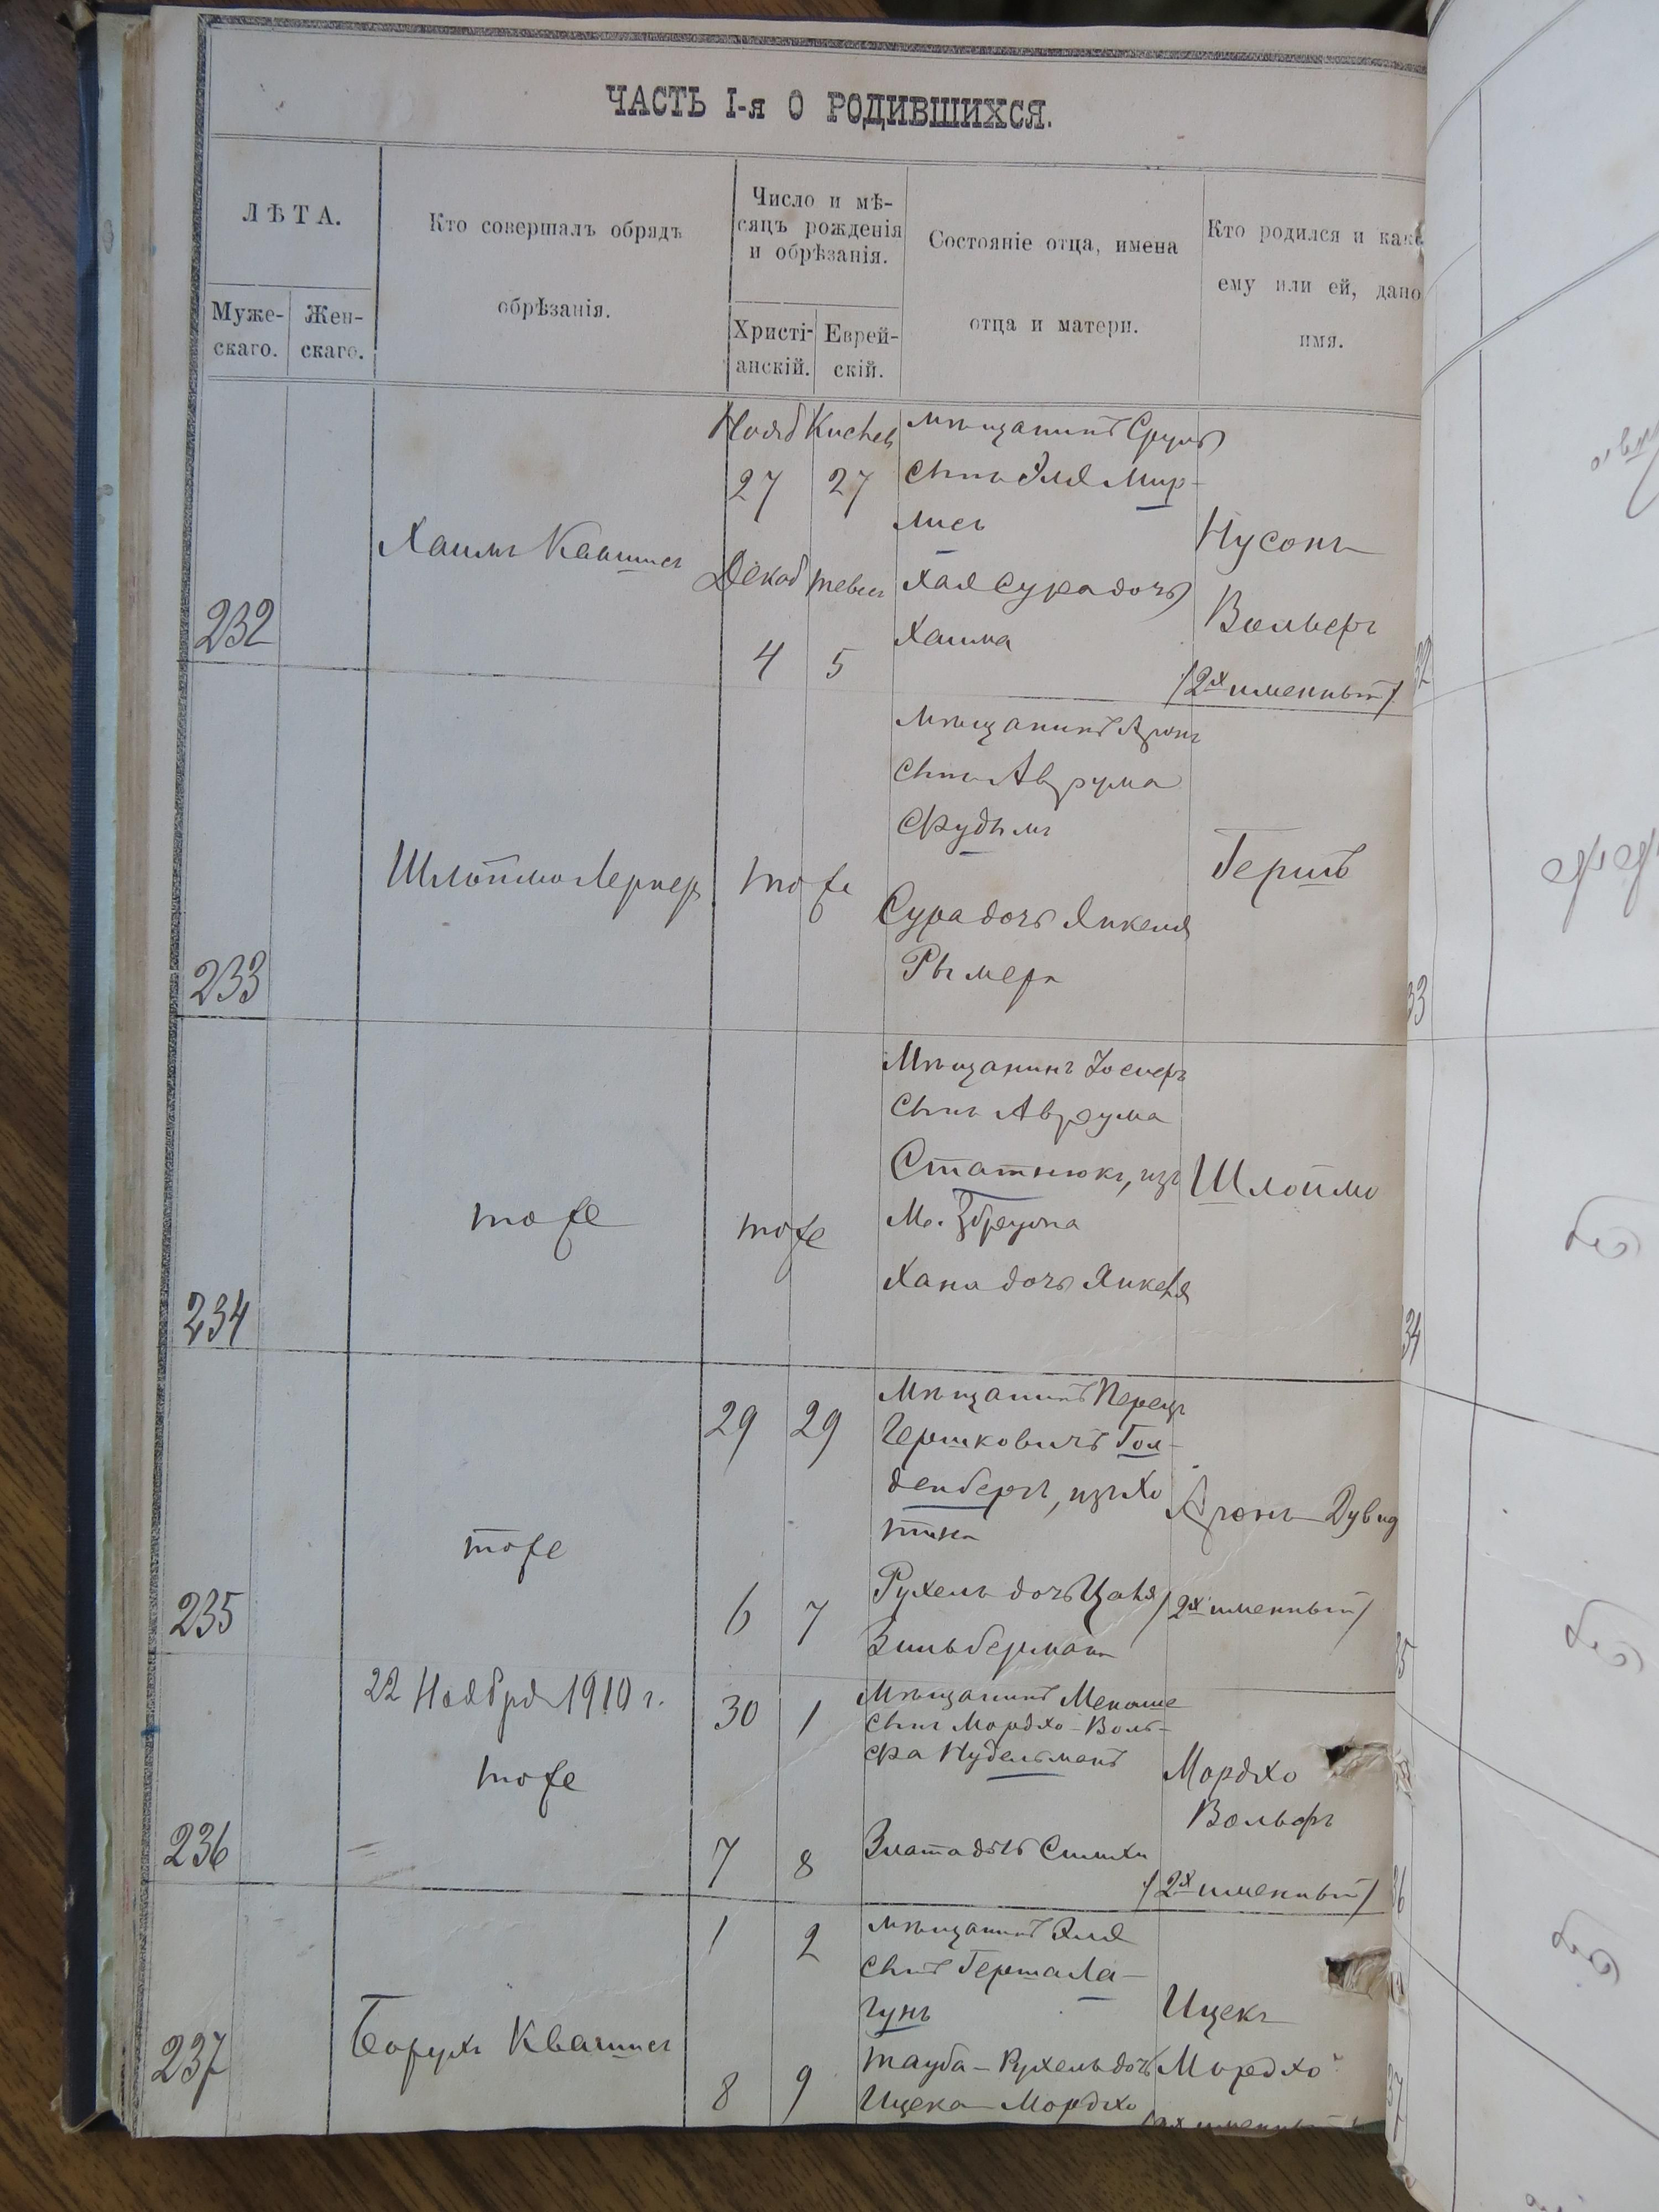 ЧАСТЬ I-я О РОДИВШИХСЯ.
ЛѢТА.
Муже-
скаго.
Жен-
скаго.
Кто совершалъ обрядъ
обрѣзанія.
Число и мѣ-
сяцъ рожденія
и обрѣзанія.
Христі-
анскій.
Еврей-
скій.
Состояніе отца, имена
отца и матери.
Кто родился и какое
ему или ей, дано
имя.
232
Хаимъ Квашисъ
Нояб Кислев
27 27
Декаб Тевес
4 5
Мѣщанинъ Сруль
сынъ Эля Мир-
лисъ
Хая Сура дочь
Хаима
Нусонъ
Вольфъ
(2х именный)
233
Шлоймо Лернер
тоже
Мѣщанинъ Аронъ
сынъ Аврума
Фудымъ
Сура дочь Янкеля
Рымера
Гершъ
234
тоже
тоже
Мѣщанинъ Іосифъ
сынъ Аврума
Статнюкъ, изъ
М.
Хана дочь Янкеля
Шлоймо
235
тоже
29 29
6 7
Мѣщанинъ Перецъ
Гершковичъ Гол-
денбергъ, изъ Хо
тина
Рухель дочь
Зильберман
Аронъ-Дувид
(2х именный)
236
22 Ноября 1910 г.
тоже
30 1
7 8
Мѣщанинъ Менаше
сынъ Мордхо-Воль-
фа Нудельманъ
Злата дочь Симхи
Мордхо
Вольфъ
(2х именный)
237
Борухъ Квашисъ
1 2
8 9
Мѣщанинъ Эля
сынъ Герша Ла-
гунъ
Тауба-Рухель дочь
Ицека-Мордхо
Ицекъ
Мордхо
(2х именный)